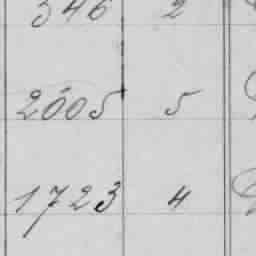 346 2
2005 5
1723 4